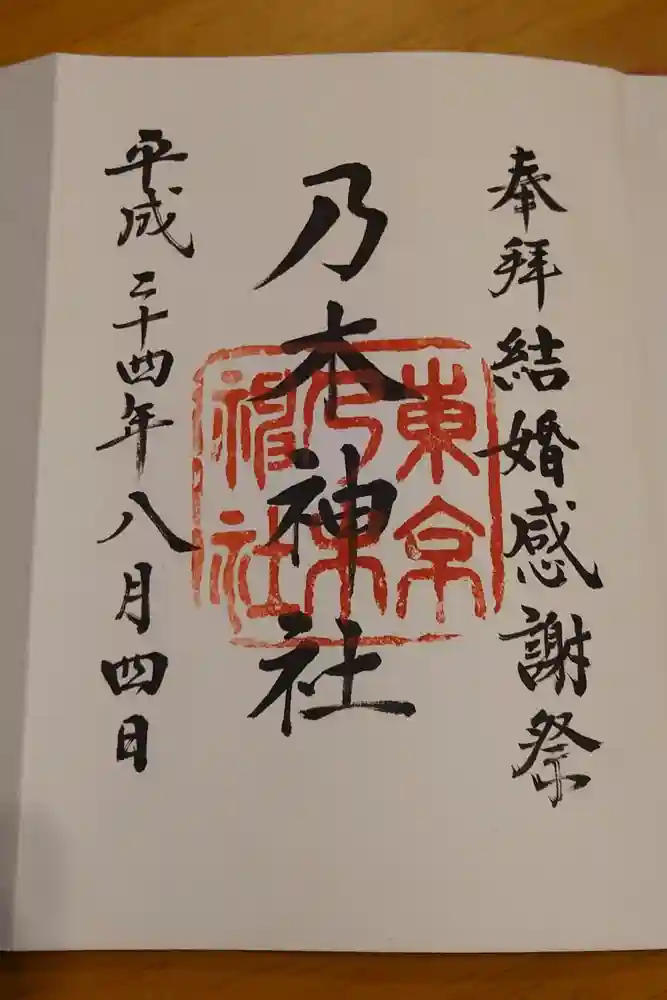 奉拝結婚感謝祭
乃木神社
東京
乃木
神社
平成二十四年八月四日